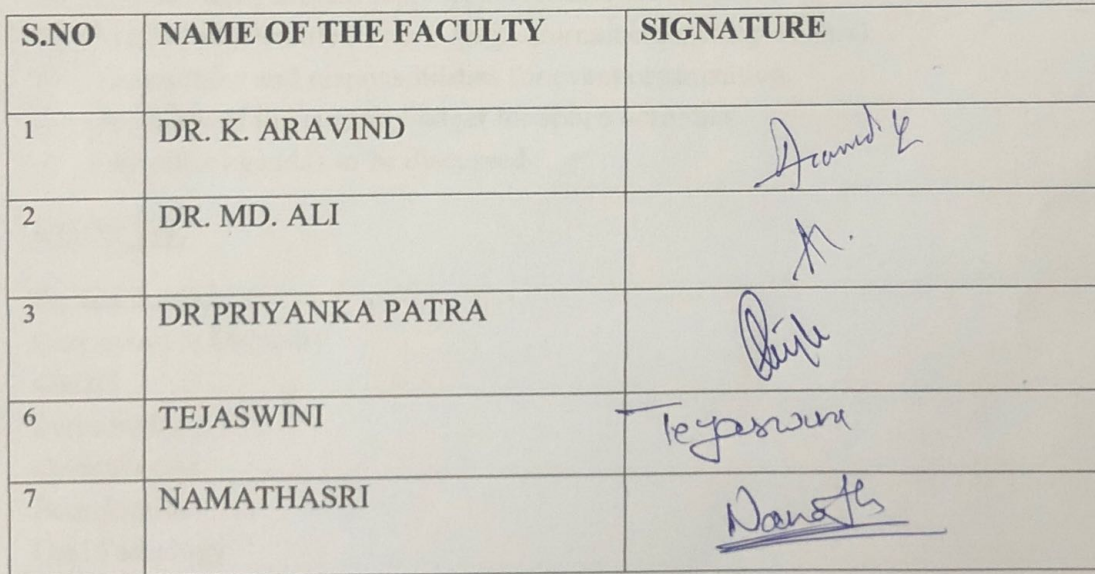 S.NO NAME OF THE FACULTY SIGNATURE
1 DR. K. ARAVIND Aravind K
2 DR. MD. ALI
3 DR PRIYANKA PATRA
6 TEJASWINI Tejaswini
7 NAMATHASRI